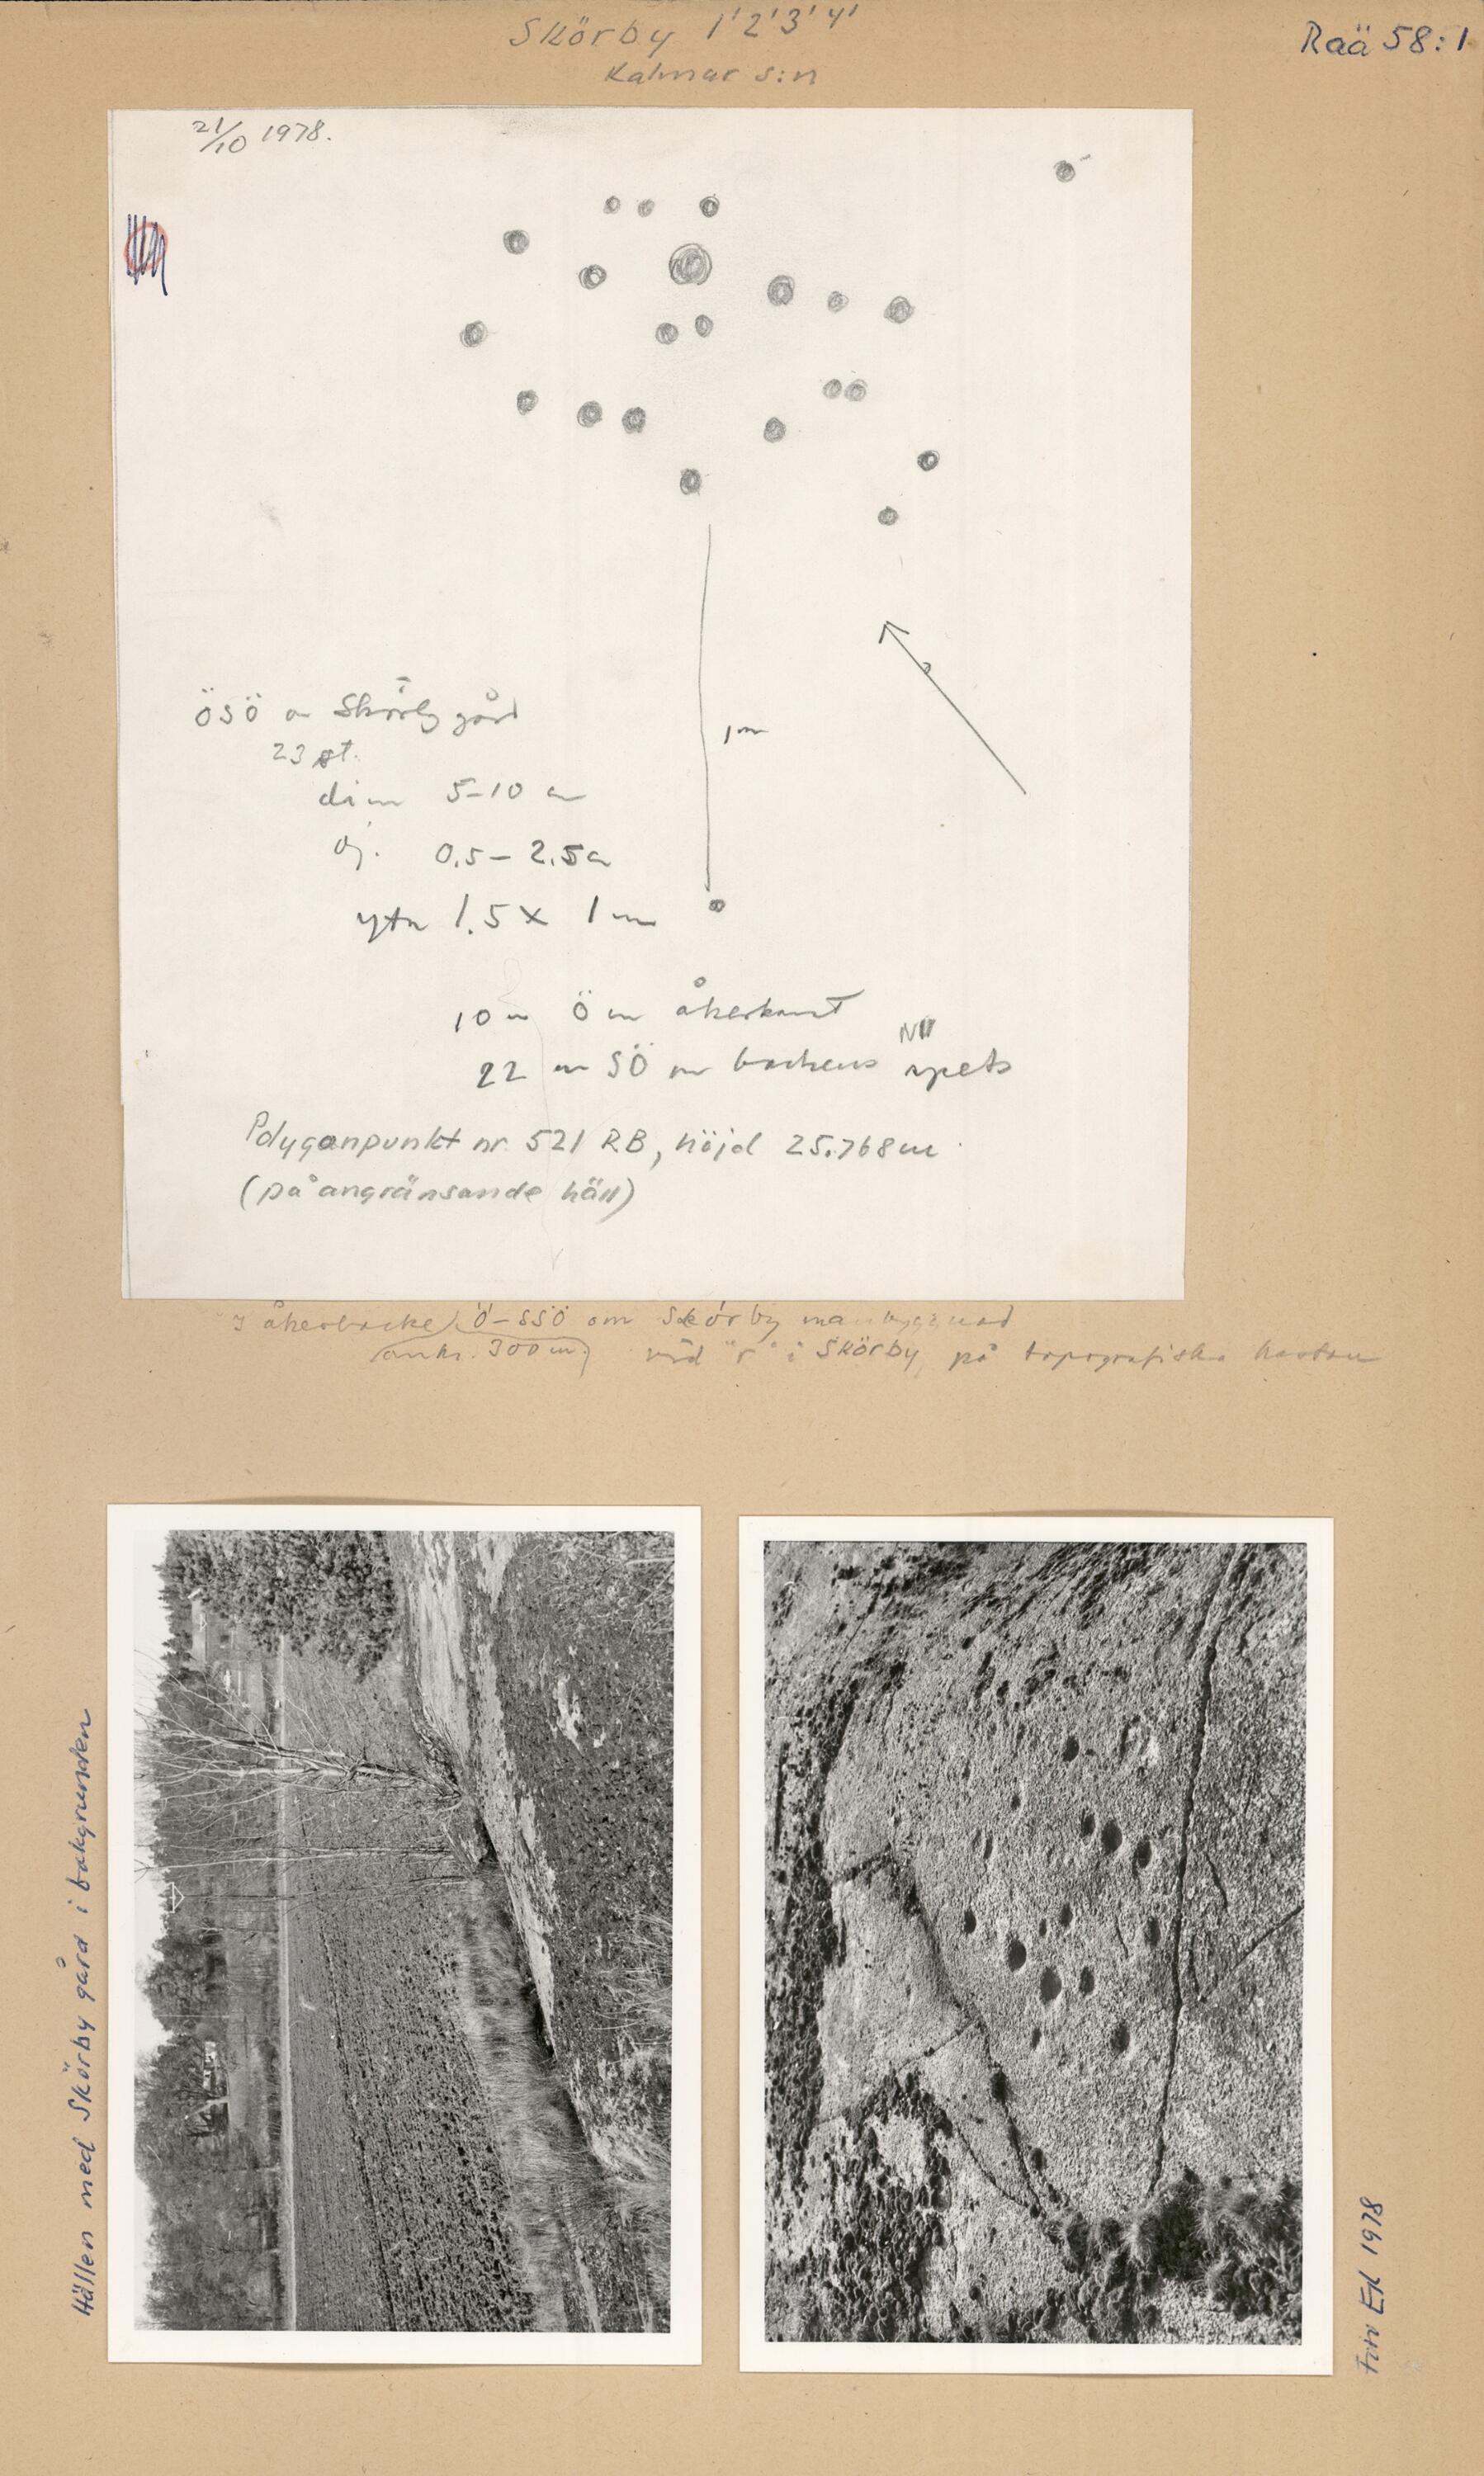 Skörby 1' 2' 3' 4'
Kalmar s:n
Raä 58:1
21/10 1978.
ÖSÖ om Skörby gård
23 st.
diam 5-10 cm
dj. 0.5 - 2.5 cm
yta 1.5 x 1 m
1 m
10 m Ö om åkerkant
22 m SÖ om backens NV spets
Polygonpunkt nr. 521 RB, höjd 25.768 m
(på angränsande häll)
I åkerbacke Ö-SSÖ om Skörby
(omkr. 300 m) vid "r" i Skörby, på topografiska kartan
Hällen med Skörby gård i bakgrunden
Foto EK 1978